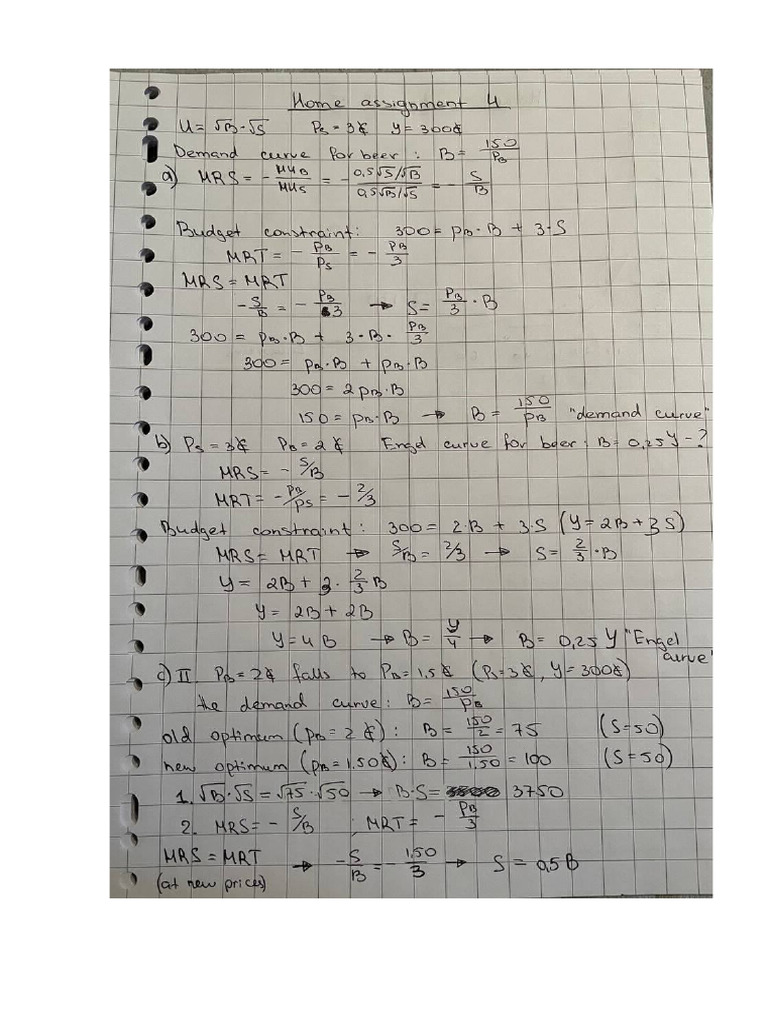 Home assignment 4
U = √B · √S    Ps = 3€    y = 300€
Demand curve for beer : B = 150/PB
a) MRS = - MUB/MUS = - 0,5√S/√B / 0,5√B/√S = - S/B
Budget constraint: 300 = pB · B + 3 · S
MRT = - PB/PS = - PB/3
MRS = MRT
- S/B = - PB/3 → S = PB/3 · B
300 = pB · B + 3 · B · PB/3
300 = pB · B + pB · B
300 = 2 pB · B
150 = pB · B → B = 150/PB "demand curve"
b) Ps = 3€    PB = 2€    Engel curve for beer ; B = 0,25Y - ?
MRS = - S/B
MRT = - PB/PS = - 2/3
Budget constraint: 300 = 2·B + 3·S (Y = 2B + 3S)
MRS = MRT → S/B = 2/3 → S = 2/3 · B
Y = 2B + 3 · 2/3 B
Y = 2B + 2B
Y = 4B → B = Y/4 → B = 0,25 Y "Engel curve"
c) II PB = 2€ falls to PB = 1,5€ (Ps = 3€, Y = 300€)
the demand curve : B = 150/PB
old optimum (pB = 2€) : B = 150/2 = 75    (S = 50)
new optimum (pB = 1.50€) : B = 150/1,50 = 100    (S = 50)
1. √B · √S = √75 · √50 → B · S = 3750
2. MRS = - S/B ; MRT = - PB/3
MRS = MRT → - S/B = - 1,50/3 → S = 0,5B
(at new prices)